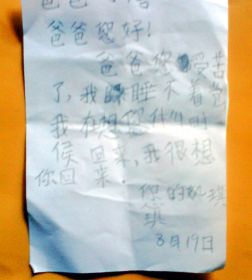 爸爸您好!
爸爸您受苦
了,我睡不着爸
我在想您什么时
候回来,我很想
你回来.
您的
琪
3月17日